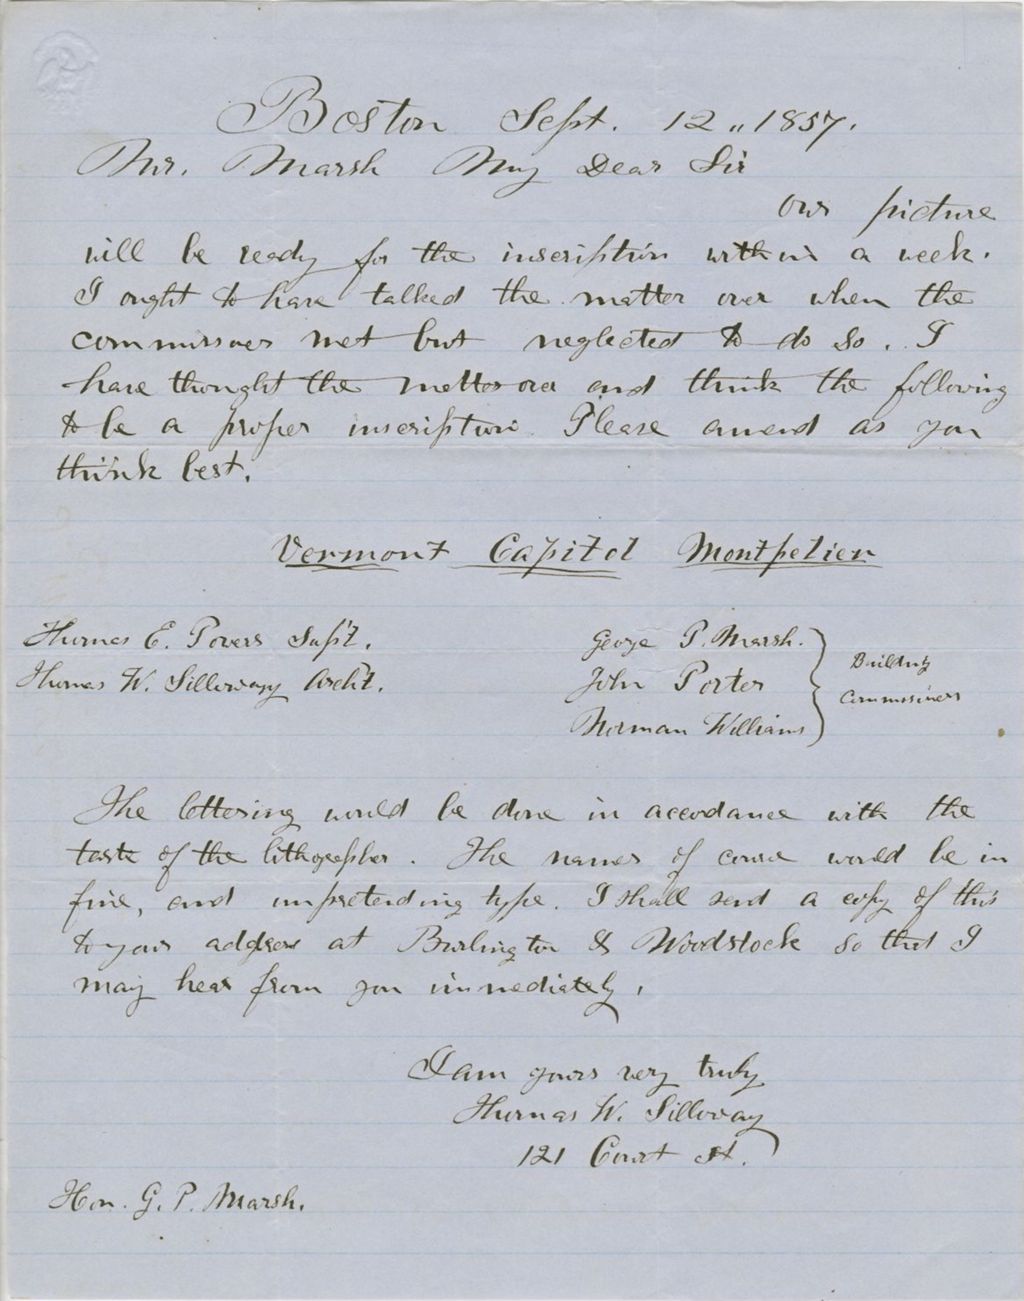 Boston Sept. 12,, 1857.
Mr. Marsh My Dear Sir
Our picture
will be ready for the inscription within a week.
I ought to have talked the matter over when the
commissoners met but neglected to do so. I
have thought the matter over and think the following
to be a proper inscription. Please amend as you
think best.
Vermont Capitol Montpelier
Thomas E. Powers Supt.
Thomas W. Silloway Archt.
George P. Marsh.
John Porter
Norman Williams
Building
Commissioners
The lettering would be done in accordance with the
taste of the lithographer. The names of course would be in
fine, and unpretending type. I shall send a copy of this
to your address at Burlington & Woodstock so that I
may hear from you immediately.
I am yours very truly
Thomas W. Silloway
121 Court St.
Hon. G. P. Marsh.